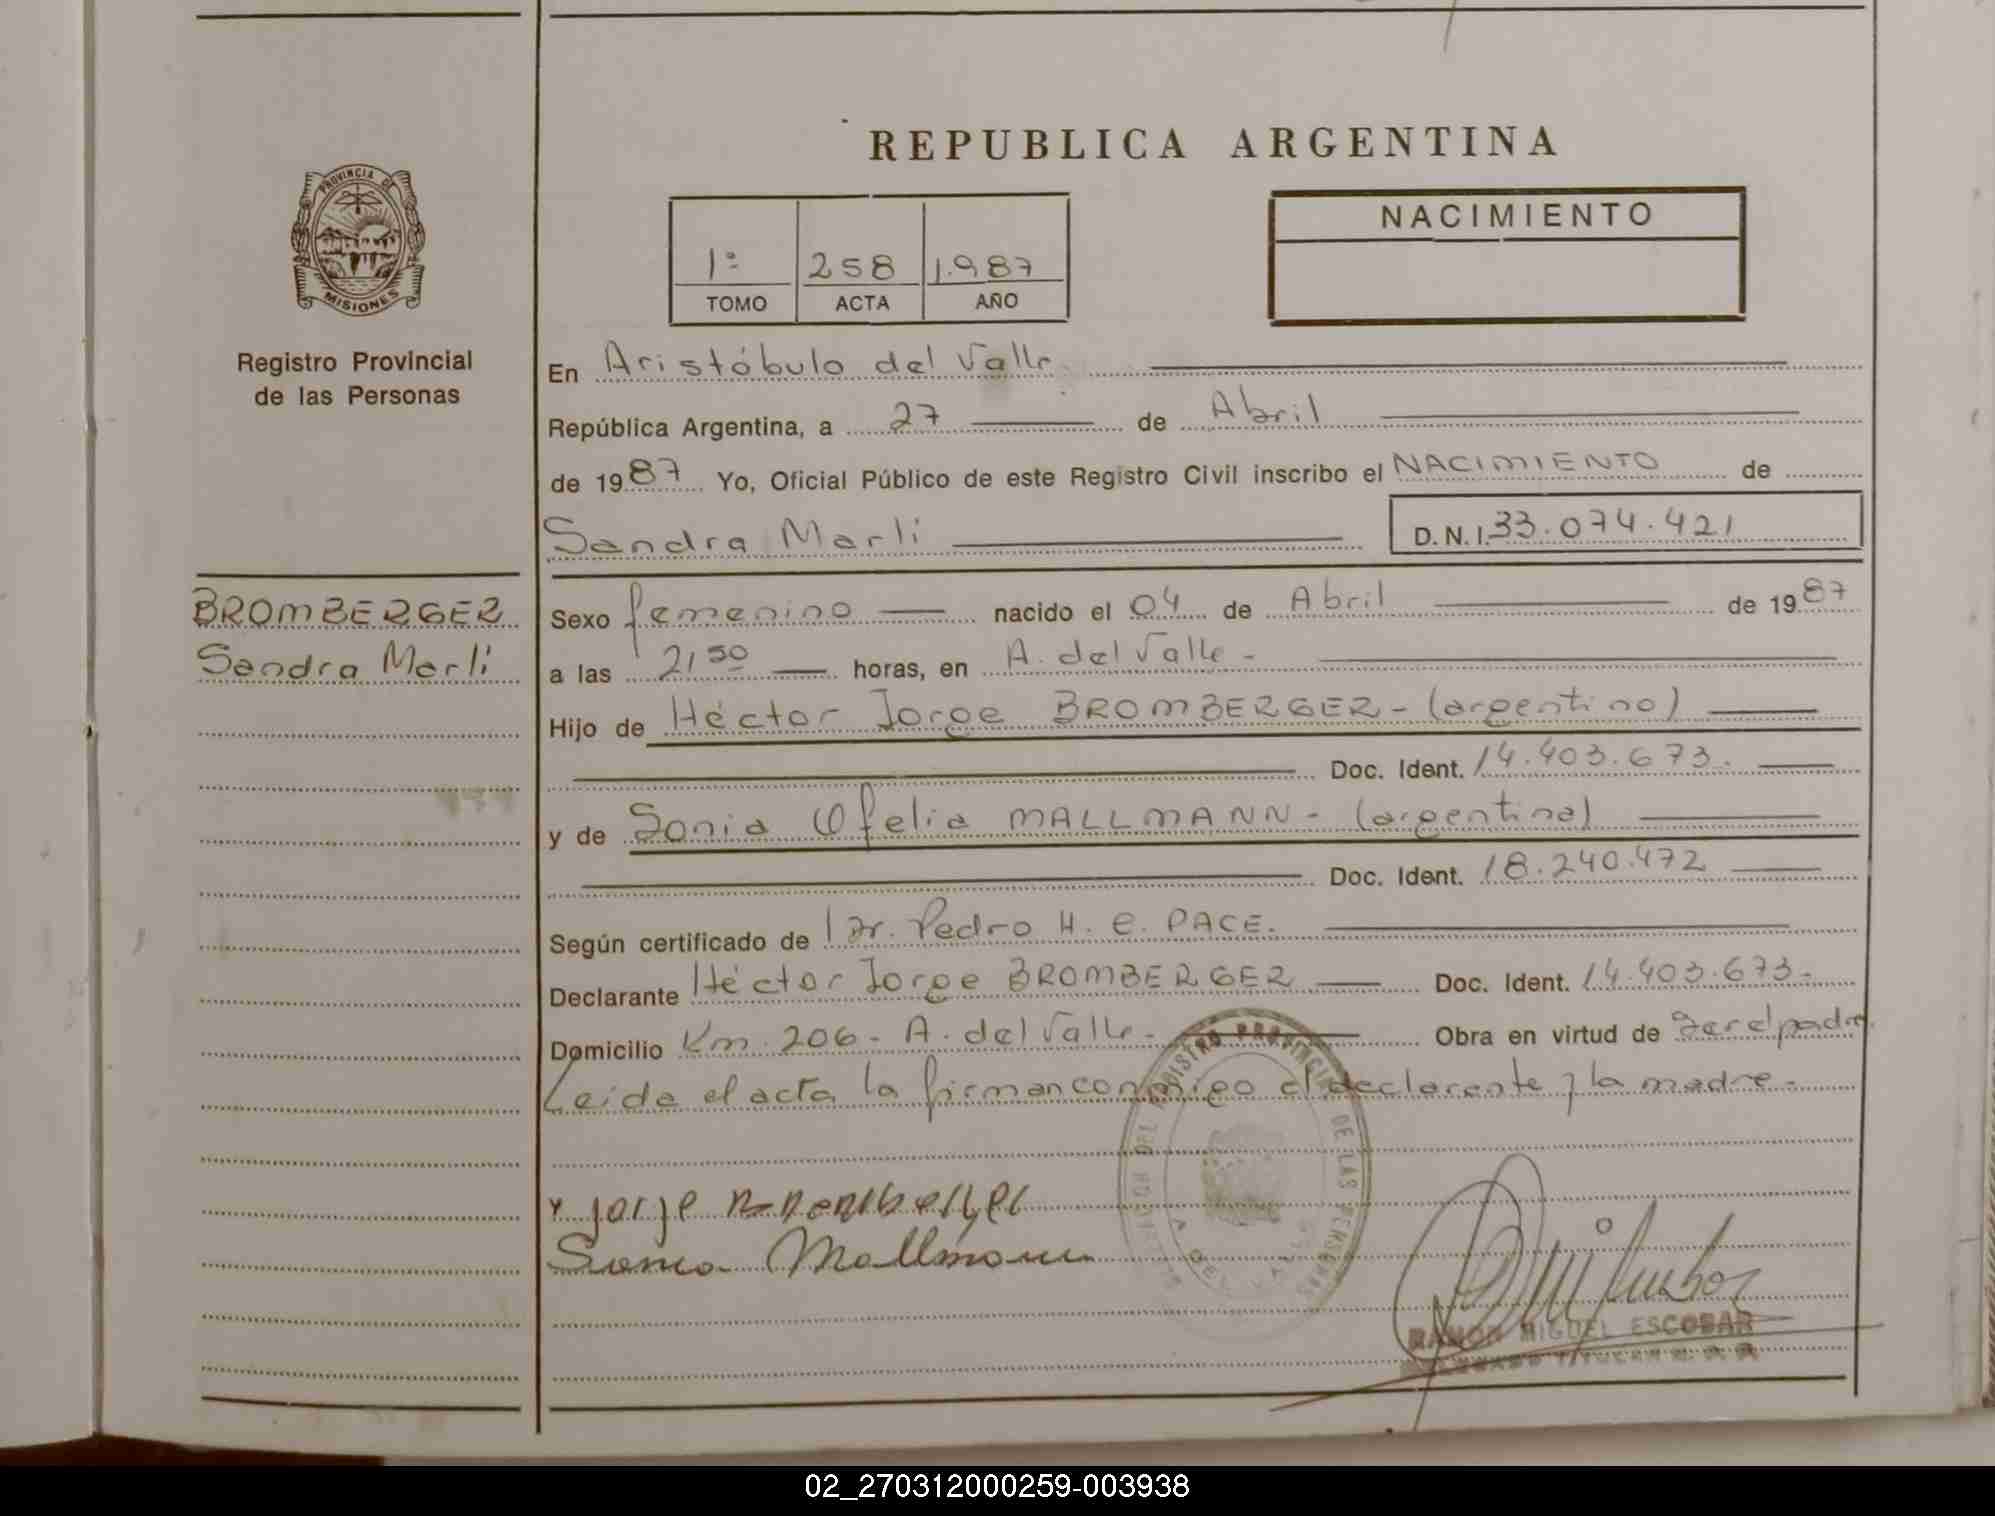 REPUBLICA ARGENTINA
PROVINCIA DE
MISIONES
Registro Provincial
de las Personas
1º 258 1.987
TOMO ACTA AÑO
NACIMIENTO
En Aristóbulo del Valle
República Argentina, a 27 de Abril
de 1987 Yo, Oficial Público de este Registro Civil inscribo el NACIMIENTO de
Sandra Marli D.N.I. 33.074.421
BROMBERGER
Sandra Marli
Sexo femenino nacido el 04 de Abril de 1987
a las 21,50 horas, en A. del Valle -
Hijo de Héctor Jorge BROMBERGER - (argentino)
Doc. Ident. 14.403.673.
y de Sonia Ofelia MALLMANN - (argentina)
Doc. Ident. 18.240.472
Según certificado de Dr. Pedro H. C. PACE.
Declarante Héctor Jorge BROMBERGER Doc. Ident. 14.403.673.-
Domicilio Km. 206 - A. del Valle - Obra en virtud de ser el padre
Leida el acta la firman conmigo el declarante y la madre.-
REGISTRO PROVINCIAL DE LAS PERSONAS
A. DEL VALLE
Jorje
Sonia Mallmann
RAMON MIGUEL ESCOBAR
02_270312000259-003938